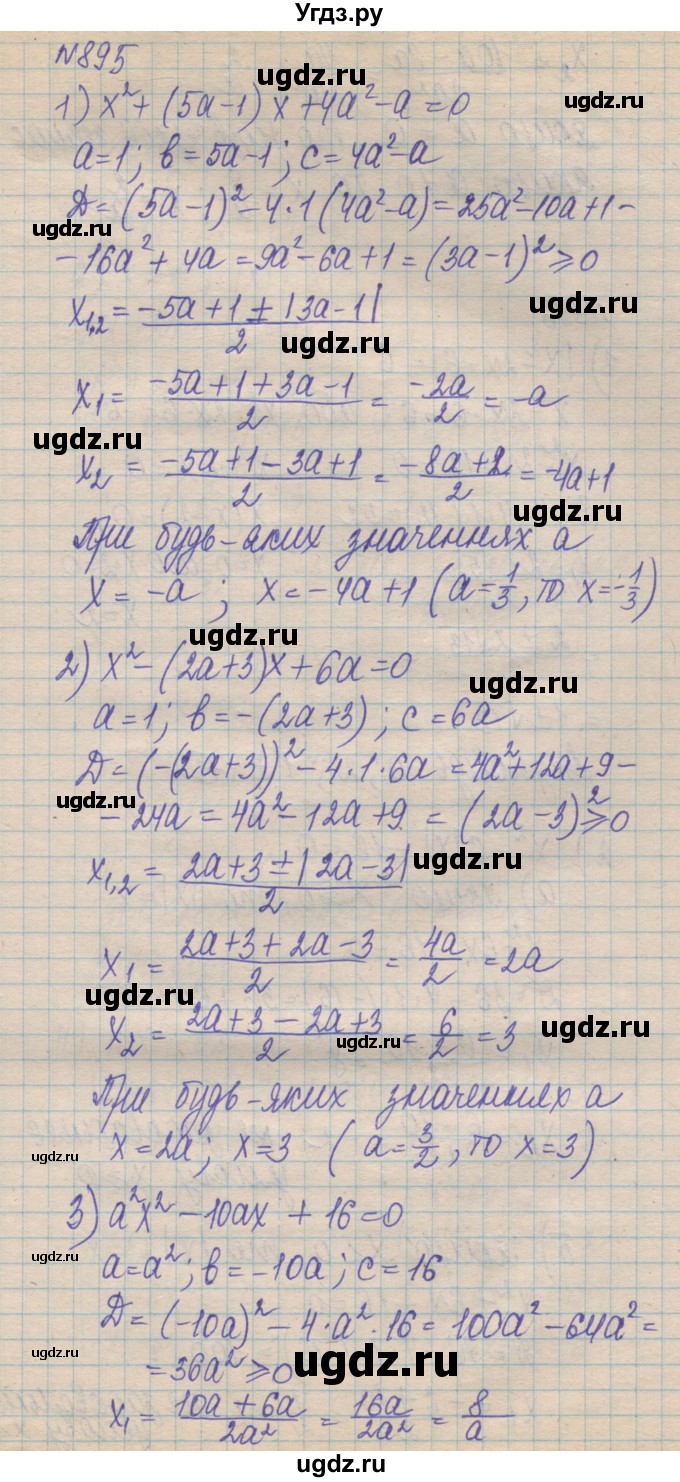 Угдз.ру
№895
ugdz.ru
1) x² + (5a-1)x + 4a² - a = 0
a=1; b=5a-1; c=4a²-a
ugdz.ru
Д=(5a-1)²-4·1(4a²-a)=25a²-10a+1-
ugdz.ru
-16a²+4a=9a²-6a+1=(3a-1)²⩾0
ugdz.ru
x₁,₂ = (-5a+1±|3a-1|)/2
ugdz.ru
x₁ = (-5a+1+3a-1)/2 = -2a/2 = -a
ugdz.ru
x₂ = (-5a+1-3a+1)/2 = (-8a+2)/2 = -4a+1
ugdz.ru
При будь-яких значеннях a
x = -a; x = -4a+1 (a=1/3, то x=-1/3)
ugdz.ru
2) x²-(2a+3)x+6a=0
ugdz.ru
a=1; b=-(2a+3); c=6a
Д=(-(2a+3))²-4·1·6a=4a²+12a+9-
ugdz.ru
-24a=4a²-12a+9=(2a-3)²⩾0
x₁,₂ = (2a+3±|2a-3|)/2
ugdz.ru
x₁ = (2a+3+2a-3)/2 = 4a/2 = 2a
ugdz.ru
x₂ = (2a+3-2a+3)/2 = 6/2 = 3
ugdz.ru
ugdz.ru
При будь-яких значеннях a
x=2a; x=3 (a=3/2, то x=3)
ugdz.ru
3) a²x²-10ax+16=0
ugdz.ru
a=a²; b=-10a; c=16
Д=(-10a)²-4·a²·16=100a²-64a²=
ugdz.ru
=36a²⩾0
ugdz.ru
x₁ = (10a+6a)/2a² = 16a/2a² = 8/a
ugdz.ru
ugdz.ru